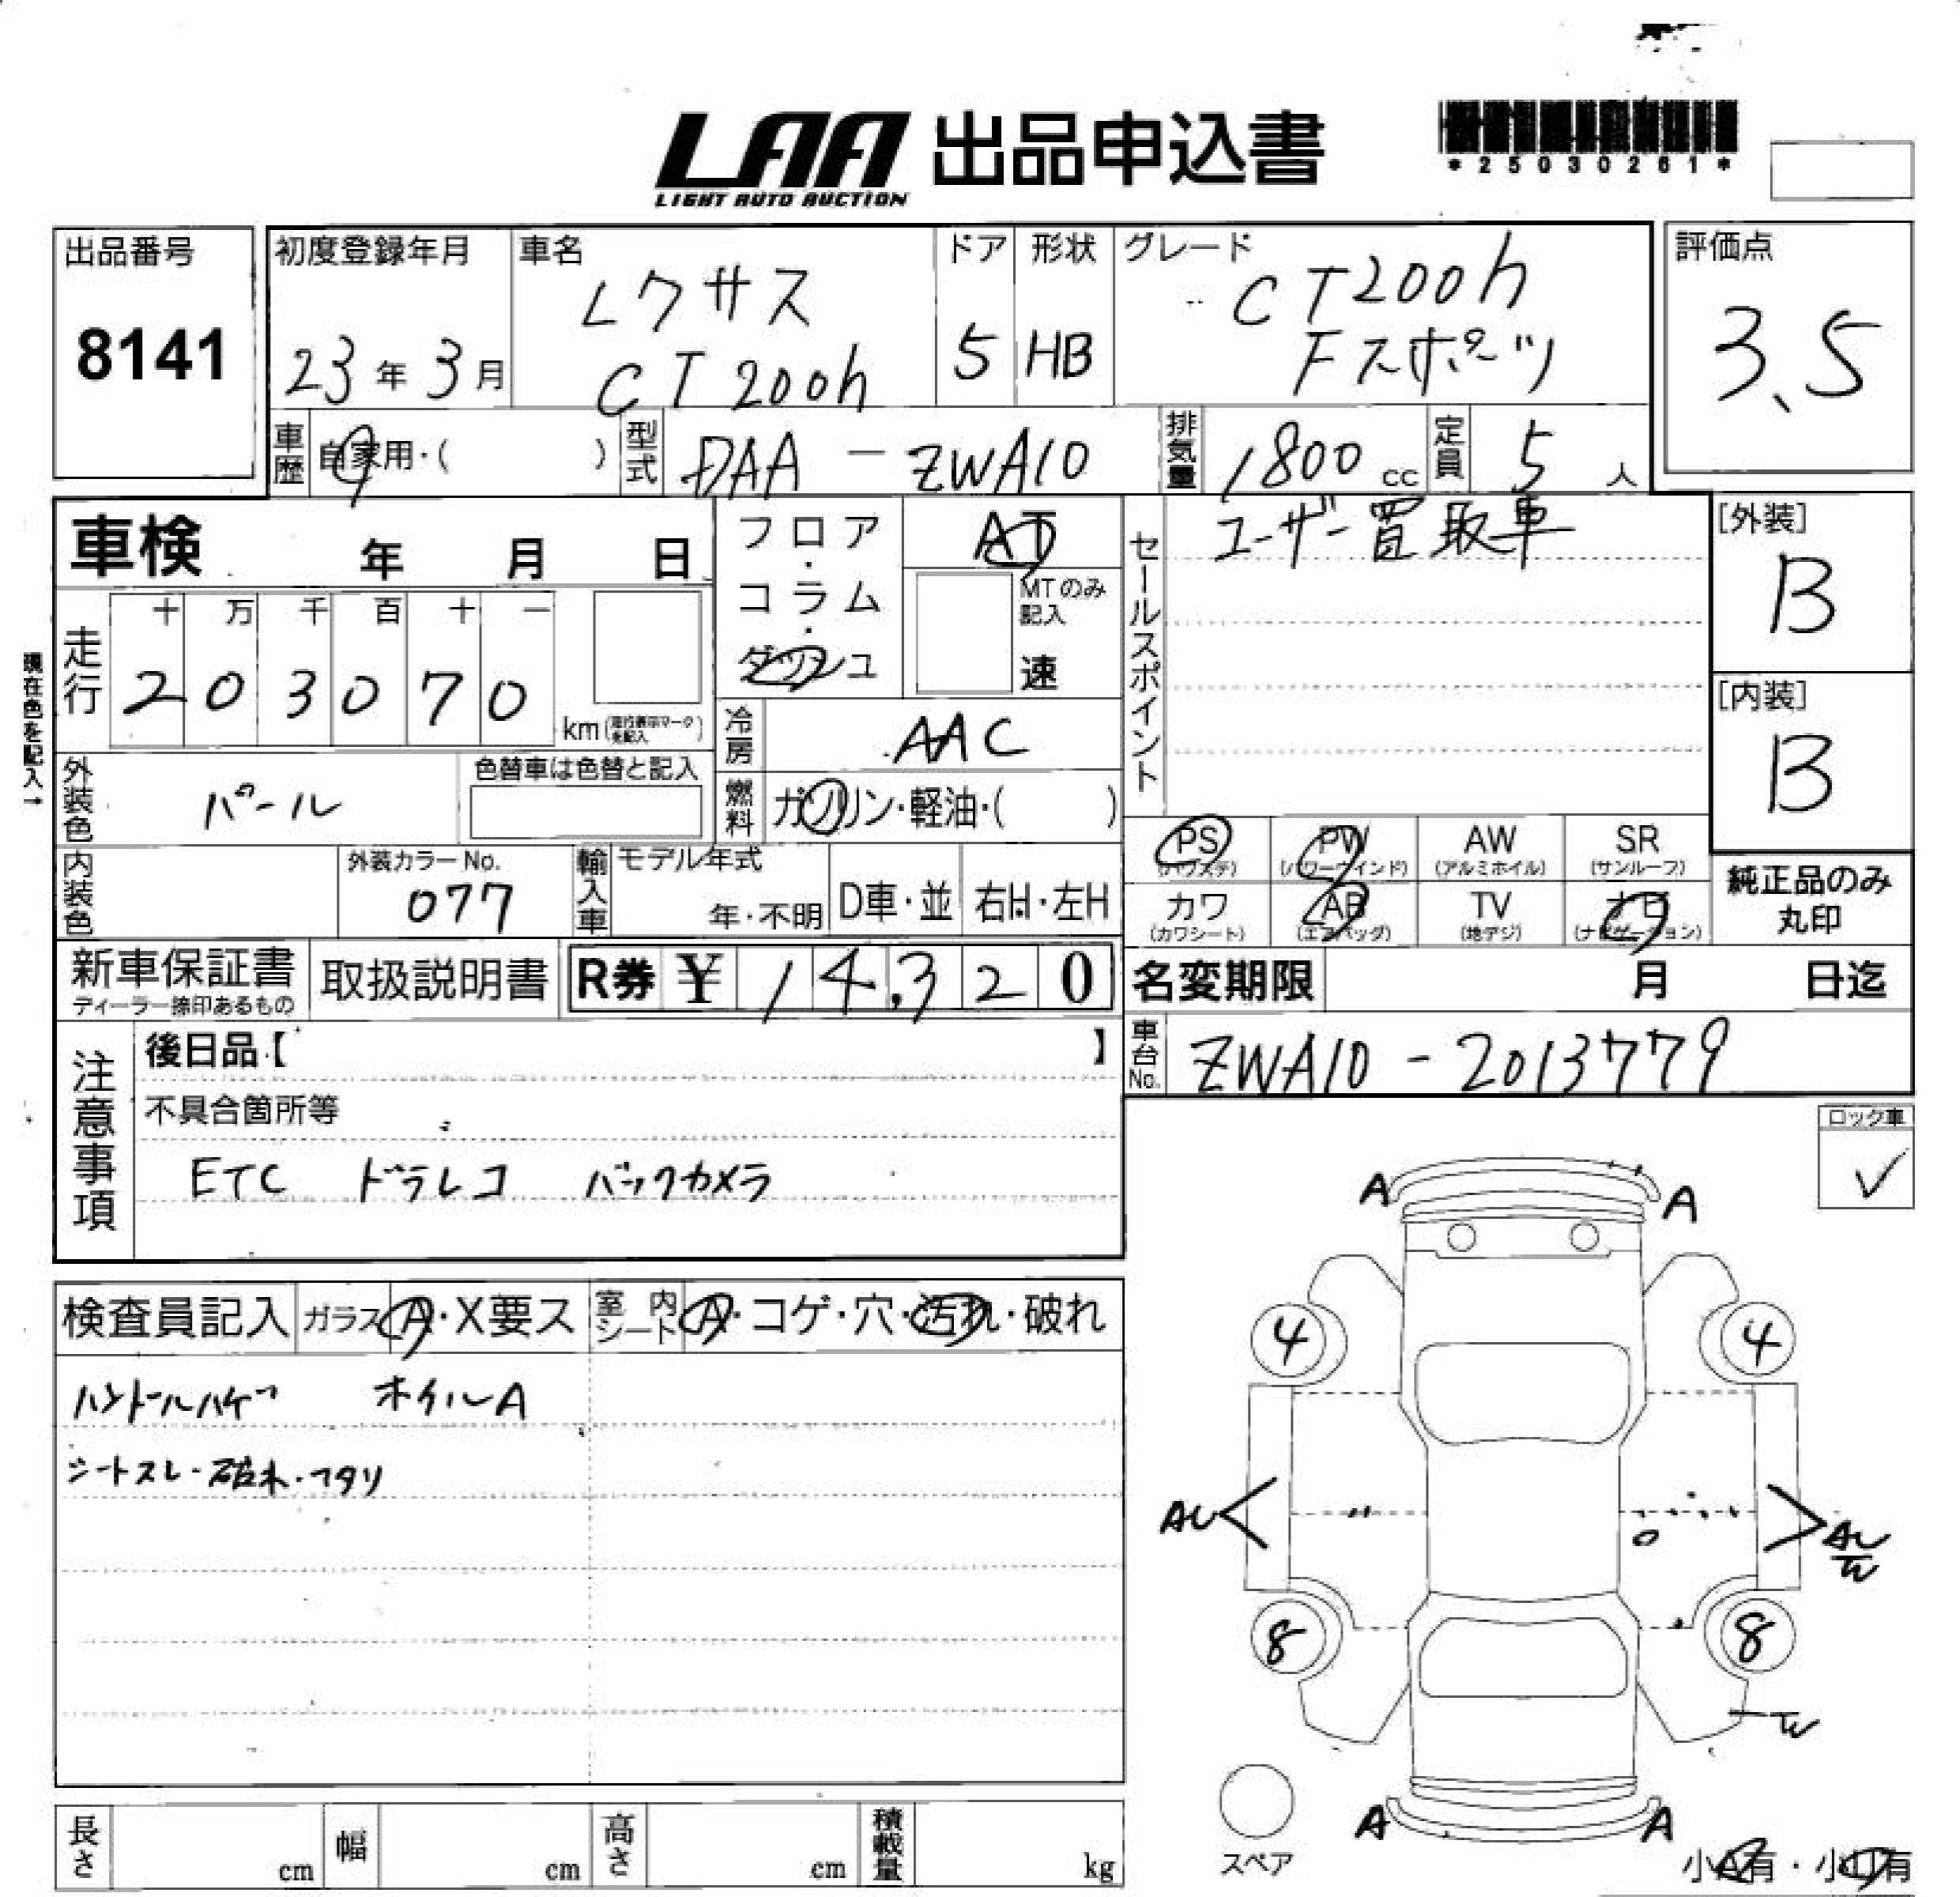 LAA 出品申込書
LIGHT AUTO AUCTION
*25030261*
出品番号
8141
初度登録年月
23年 3月
車名
レクサス
CT200h
ドア
5
形状
HB
グレード
CT200h
Fスポーツ
評価点
3.5
車歴
自家用・( )
型式
DAA - ZWA10
排気量
1800 cc
定員
5 人
車検 年 月 日
フロア・コラム・ダッシュ
AT
MTのみ記入
速
セールスポイント
ユーザー買取車
[外装]
B
[内装]
B
現在色を記入→
走行
十 万 千 百 十 一
2 0 3 0 7 0
km
冷房
AAC
外装色
パール
色替車は色替と記入
燃料
ガソリン・軽油・( )
PS (パワステ)
PW (パワーウインド)
AW (アルミホイル)
SR (サンルーフ)
カワ (カワシート)
AB (エアバッグ)
TV (地デジ)
ナビ (ナビゲーション)
純正品のみ
丸印
内装色
外装カラーNo.
077
輸入車
モデル年式
年・不明
D車・並
右H・左H
新車保証書
ディーラー捺印あるもの
取扱説明書
R券 ¥ 14,320
名変期限 月 日迄
車台No.
ZWA10 - 2013779
注意事項
後日品【 】
不具合箇所等
ETC ドラレコ バックカメラ
ロック車
✓
検査員記入
ガラス A・X要ス
室内シート A・コゲ・穴・汚れ・破れ
ハンドルハゲ ホイルA
シートスレ・破れ・ヘタリ
A A
4 4
AU
AU
W
8 8
W
A A
スペア
小A有・小凹有
長さ cm
幅 cm
高さ cm
積載量 kg